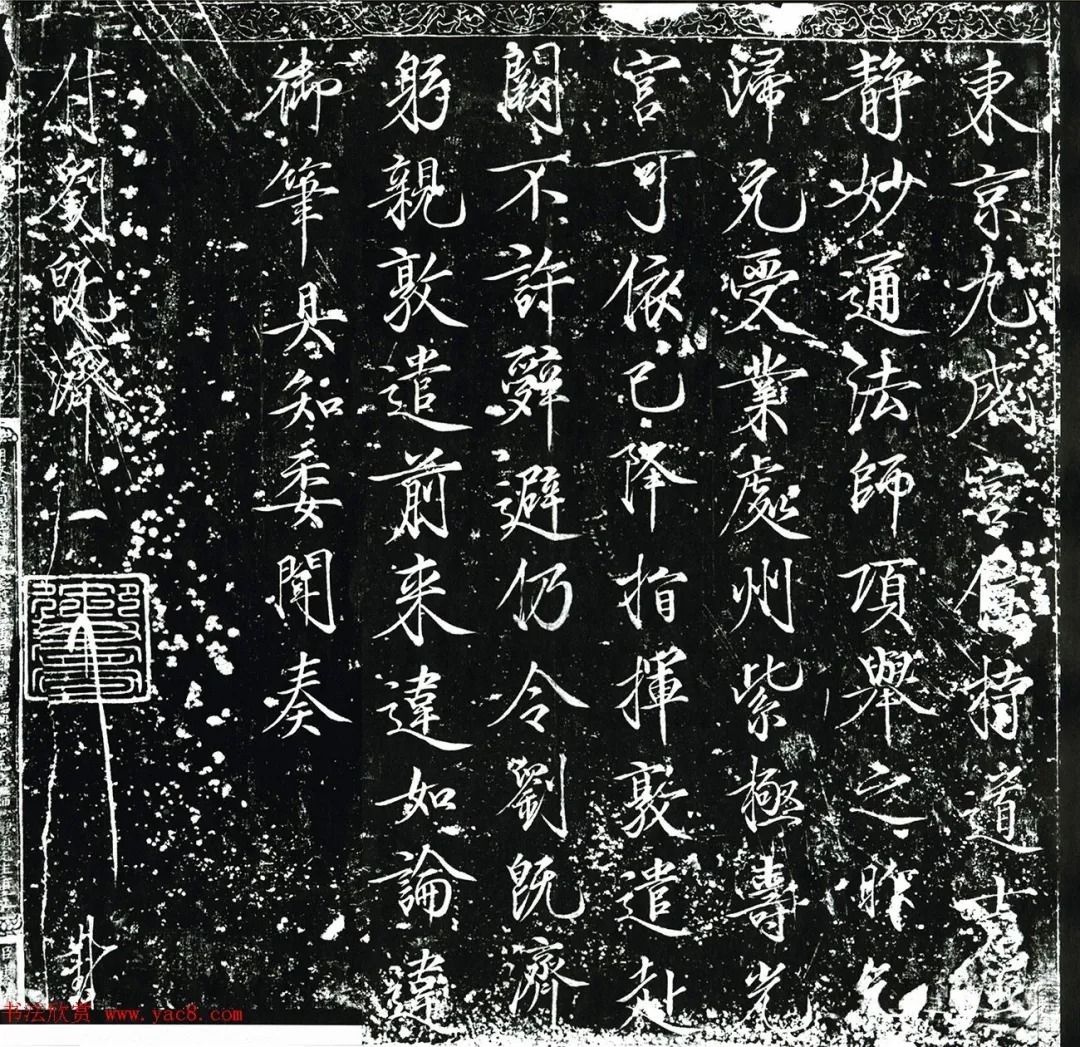 東京九成宮住持道士
静妙通法師項舉之昨乞
歸元受業處州紫極壽光
宮可依已降指揮敦遣赴
闕不許辭避仍令劉既濟
躬親敦遣前来違如論違
御筆具知委聞奏
付劉既濟
書法欣赏 www.yac8.com